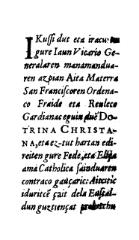 IKuſſi dut eta iracu-
gure Iaun Vicario Ge-
neralaren manamandua-
ren azpian Aita Materra
San Franciſcoren Ordena-
co Fraide eta Reuleco
Gardianac eguin du DO-
TRINA CHRISTA-
NA, eta ez-tut hartan edi-
reiten gure Fede, eta
ama Catholica ſainduaren
contraco gauçaric:
iduricẽ çait dela Euſcal-
dun guztiençat